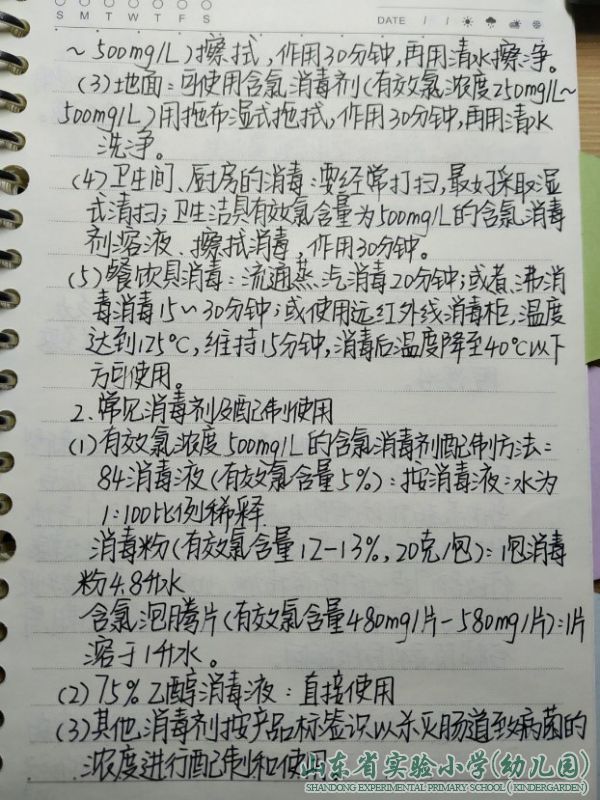 S M T W T F S
DATE / /
~500mg/L)擦拭,作用30分钟,再用清水擦净。
(3)地面:可使用含氯消毒剂(有效氯浓度250mg/L~
500mg/L)用拖布湿式拖拭,作用30分钟,再用清水
洗净。
(4)卫生间、厨房的消毒:要经常打扫,最好采取湿
式清扫;卫生洁具有效氯含量为500mg/L的含氯消毒
剂溶液、擦拭消毒,作用30分钟。
(5)餐饮具消毒:流通蒸汽消毒20分钟;或者沸消
毒消毒15~30分钟;或使用远红外线消毒柜,温度
达到125℃,维持15分钟,消毒后温度降至40℃以下
方可使用。
2.常见消毒剂及配制使用
(1)有效氯浓度500mg/L的含氯消毒剂配制方法:
84消毒液(有效氯含量5%):按消毒液:水为
1:100比例稀释
消毒粉(有效氯含量12-13%,20克/包):1包消毒
粉4.8升水
含氯泡腾片(有效氯含量480mg/片-580mg/片):1片
溶于1升水。
(2)75%乙醇消毒液:直接使用
(3)其他消毒剂按产品标签识以杀灭肠道致病菌的
浓度进行配制和使用。
山东省实验小学(幼儿园)
SHANDONG EXPERIMENTAL PRIMARY SCHOOL (KINDERGARDEN)